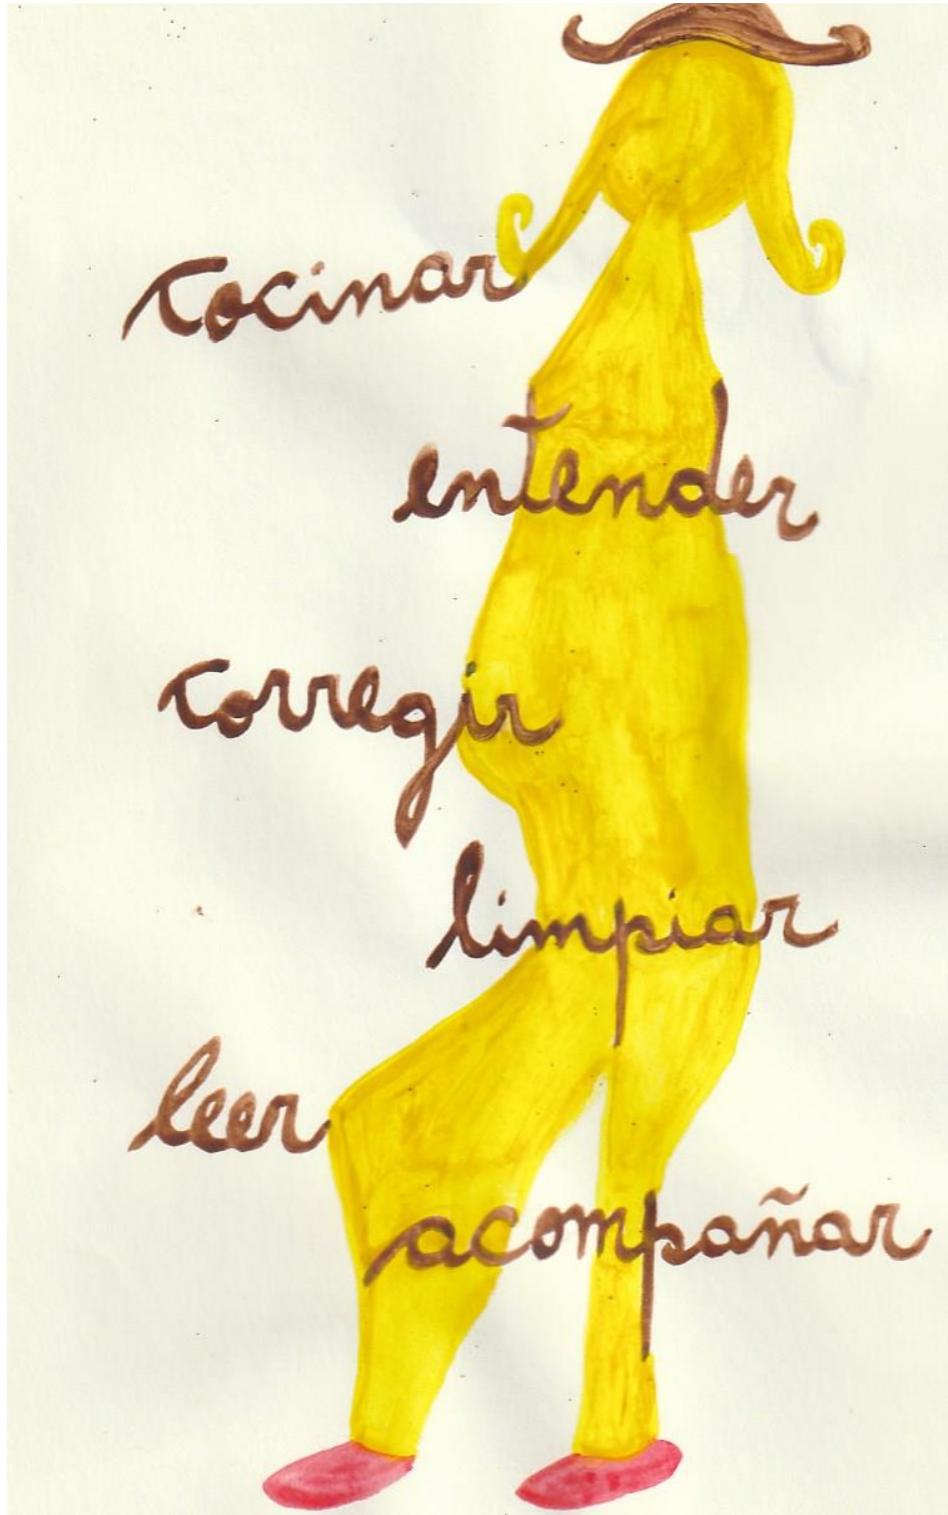 cocinar
entender
corregir
limpiar
leer
acompañar